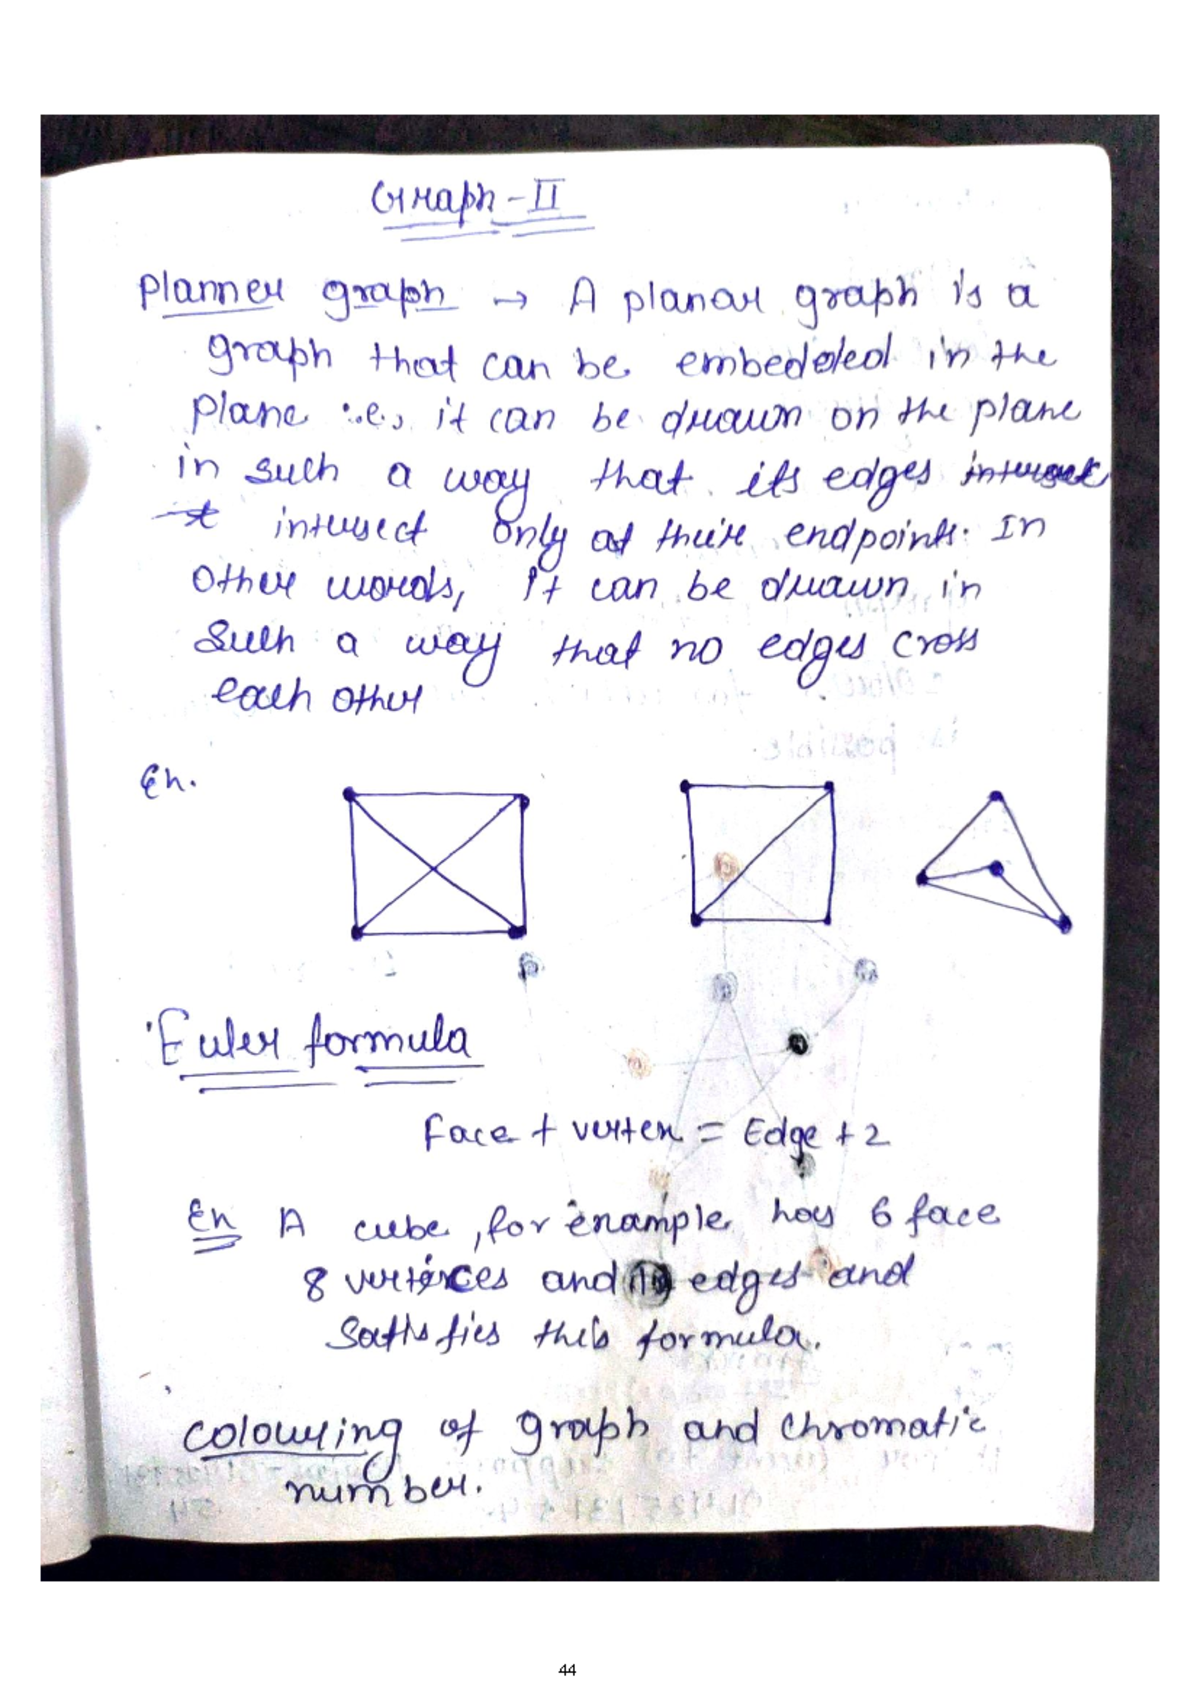 Graph-II
Planner graph → A planar graph is a
graph that can be embedded in the
plane i.e., it can be drawn on the plane
in such a way that its edges intersect
intersect only at their endpoints. In
other words, it can be drawn in
such a way that no edges cross
each other
Ex.
Euler formula
Face + vertex = Edge + 2
Ex A cube, for example has 6 face
8 vertices and edges and
Satisfies this formula.
Colouring of graph and chromatic
number.
44